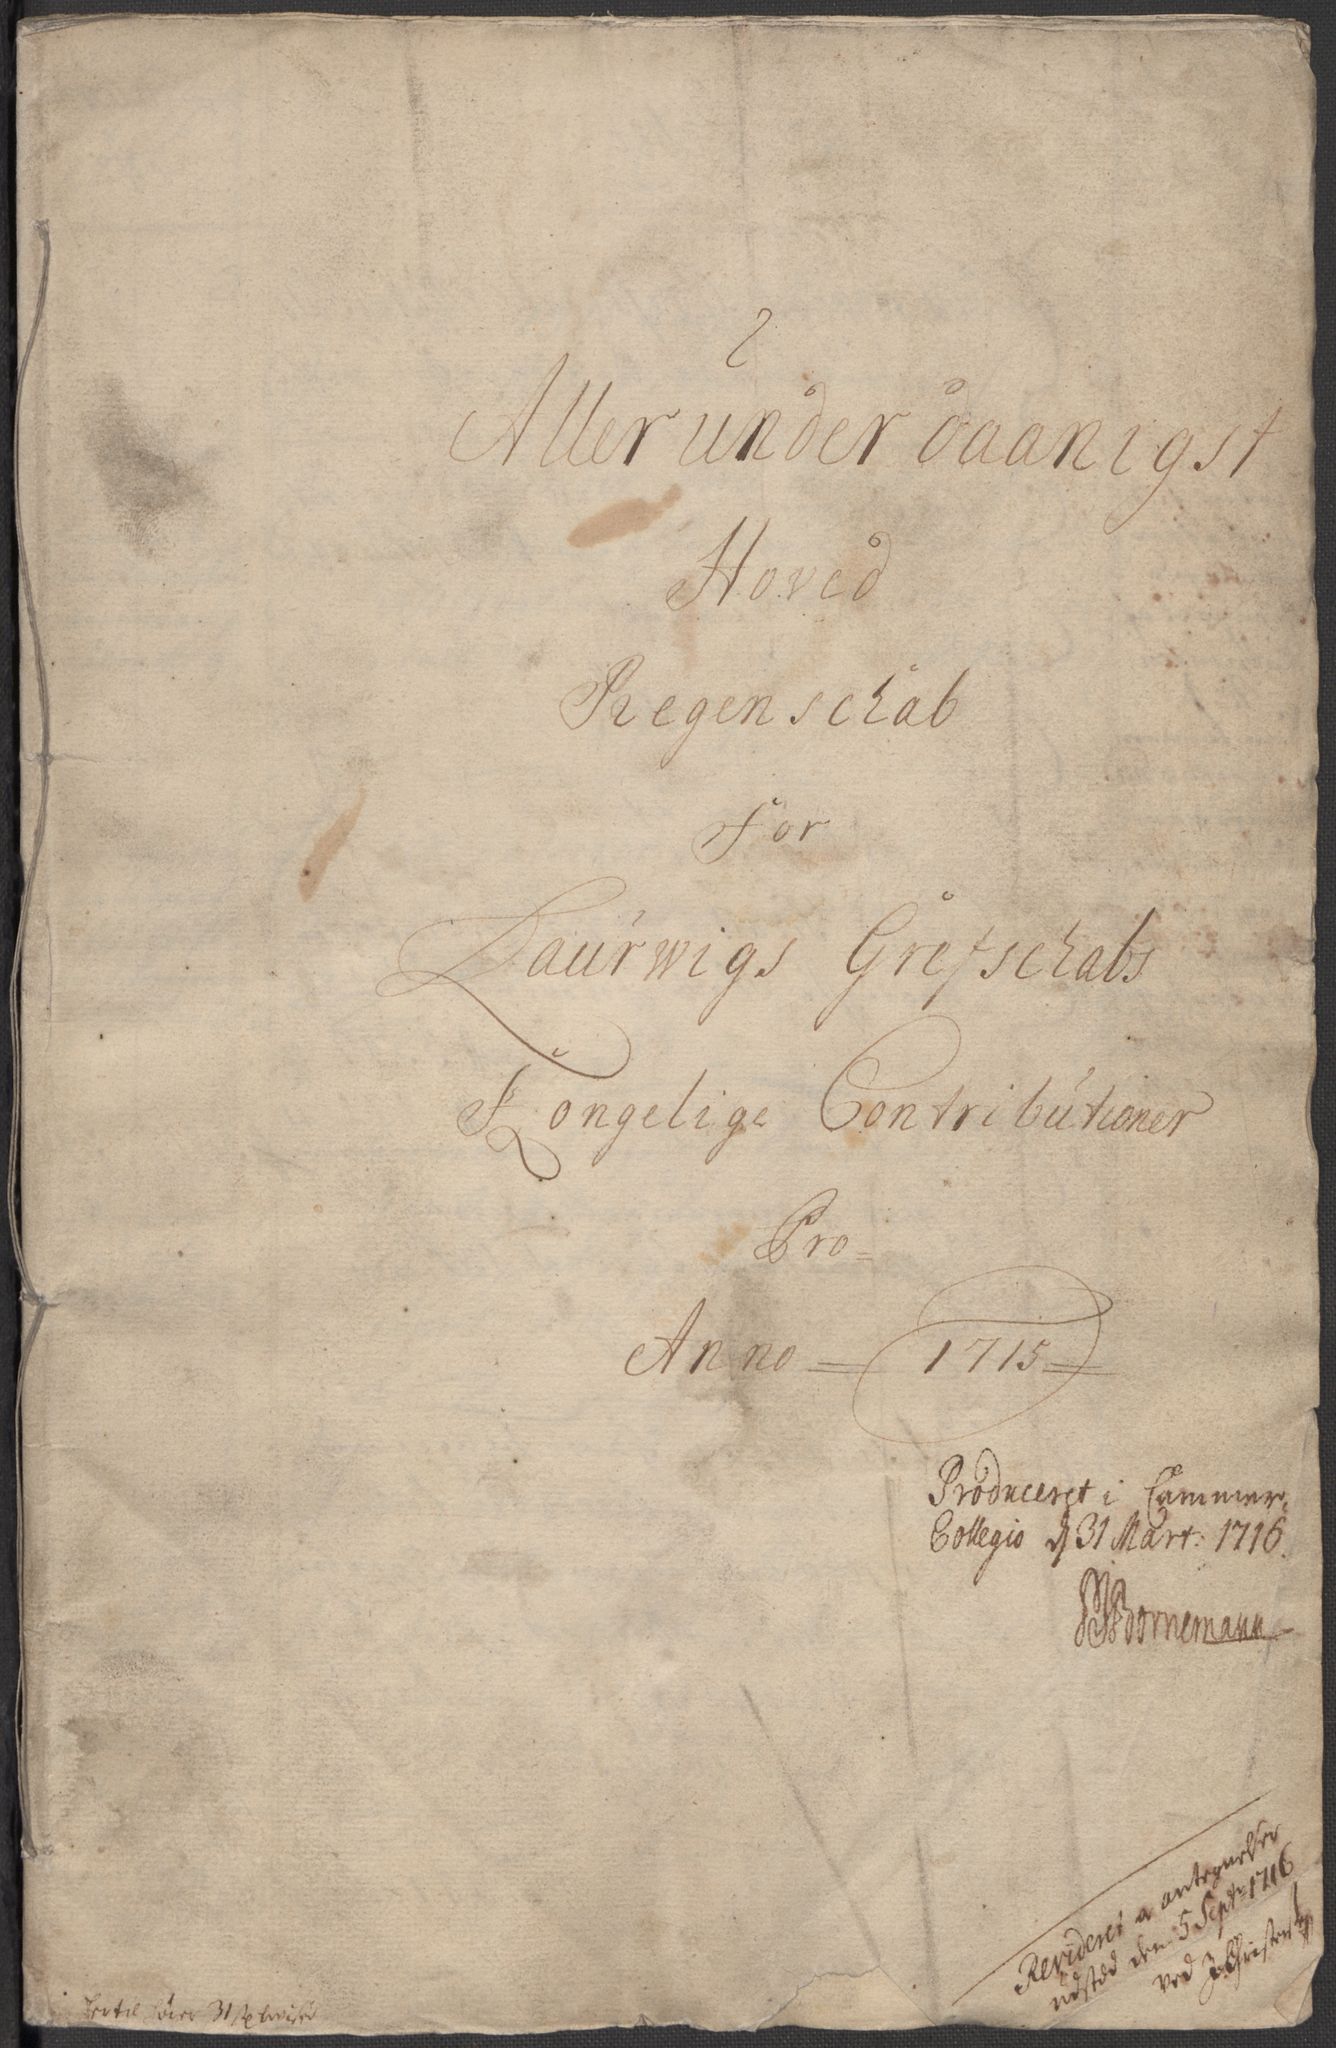 Alleründerdaanigst
Hoved
Regenschab
for
Laürwigs Grefschabs
Kongelige Contribütioner
Pro
Anno 1715
Produceret i Cammer
Collegio d 31 Mart: 1716.
Bornemann
Revideret a antegnelser
üdsted den 5 Sept: 1716
ved
hertil hører 31